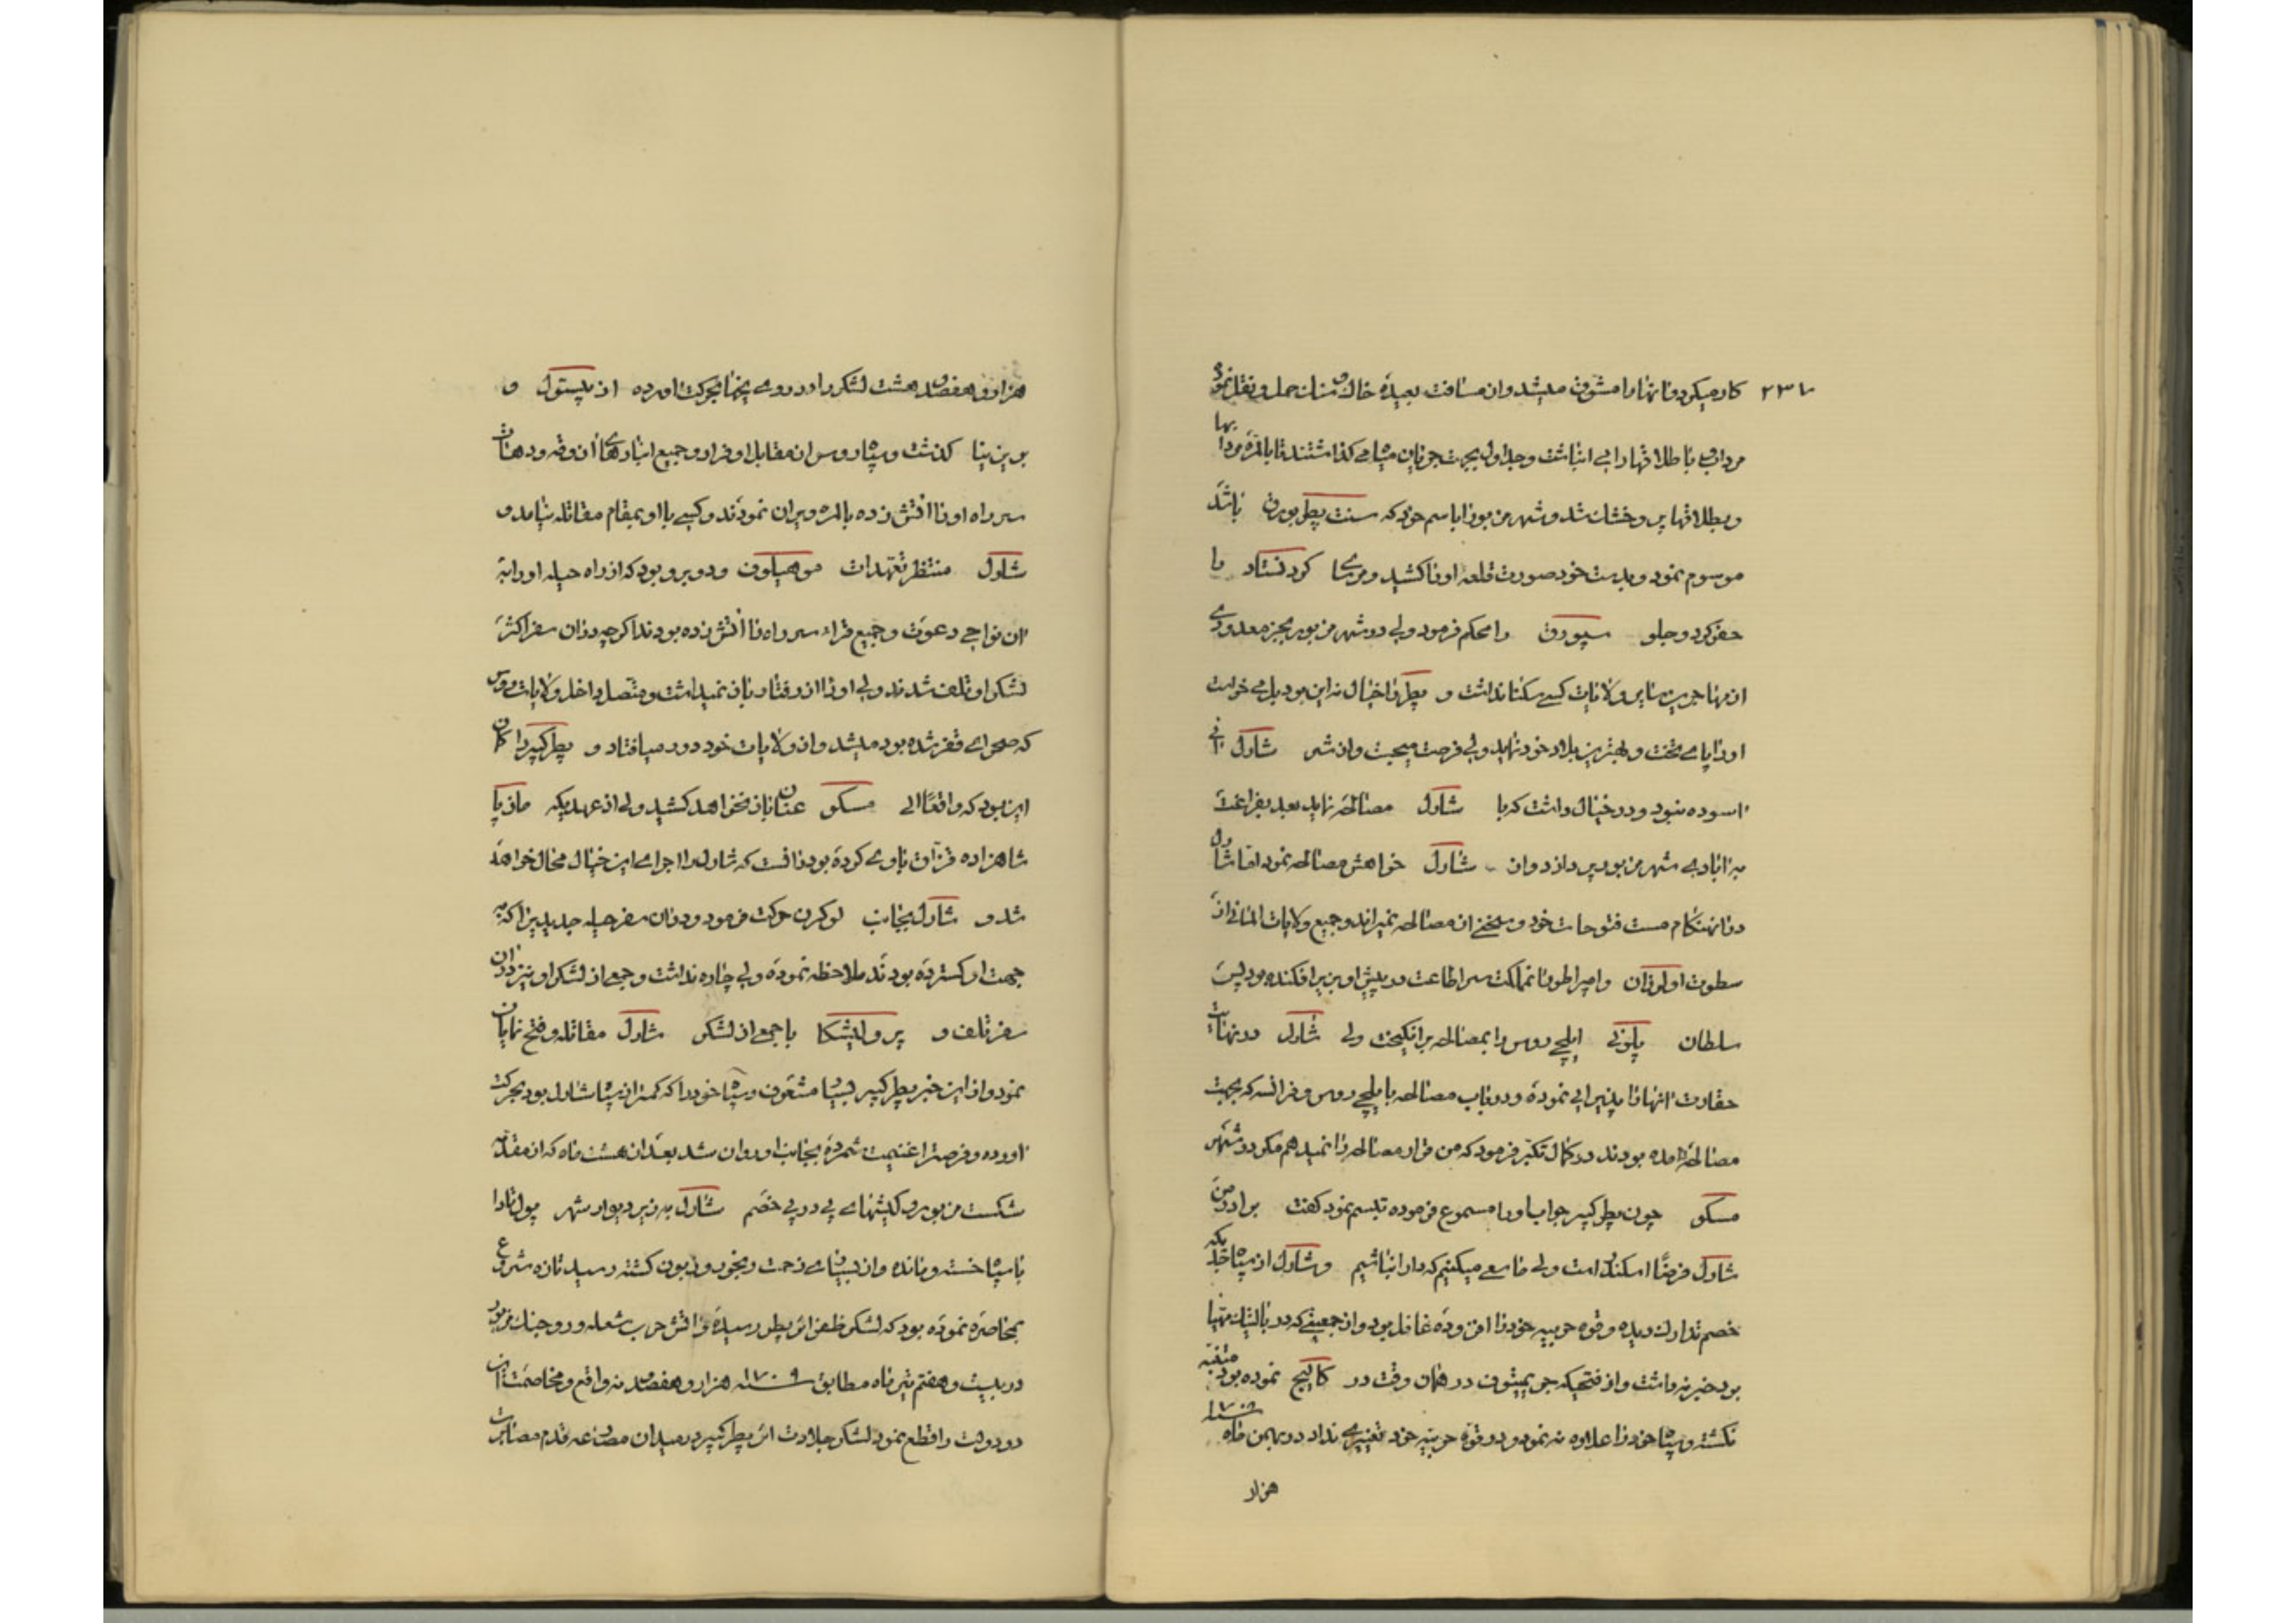 ۲۳۷
کار میکرد و انها را مشوق میشد و از مسافت بعیده خاک و سنک حمل و نقل نمود
مردابی باطلاقها را بی انباشت و جداول بجهت جریان میاه می کذاشتند تا بالمره مردابها
و بطلاقها پر و خشک شد و شهر مزبور را باسم خود که سنت پطربورغ باشد
موسوم نمود و بدست خود صورت قلعه او را کشید و مرسای کرونستاد را
حفر کرد و جلو سیورق را محکم فرمود ولی در شهر مزبور بجز معدودی
از مهاجرین سایر ولایات کسی سکنا نداشت و پطر را خیال نه این بود بل می خواست
او را پای تخت و بهترین بلاد خود نماید ولی فرصت میجست و از شر شارل انی
اسوده نبود و در خیال داشت که با شارل مصالحه نماید بعد بفراغت
به ابادی شهر مزبور پردازد و از شارل خواهش مصالحه نمود اما شارل
در انهنکام مست فتوحات خود و سخنی از مصالحه نمیراند و جمیع ولایات المانی از
سطوت او لرزان و امپراطور نا تملکت سر اطاعت در پیش او بزیر افکنده بود پس
سلطان پلونی ایلچی روس را بمصالحه برانکیخت ولی شارل در نهایت
حقارت انها را پذیرایی نموده و در باب مصالحه با ایلچی روس و فرانسه که بجهت
مصالحه امده بودند در کمال تکبر فرمود که من قرار مصالحه را نمیدهم مکر در شهر
مسکو چون پطر کبیر جواب او را مسموع فرموده تبسم نمود کفت برادر من
شارل فرضا اسکندر است ولی ما سعی میکنیم که دارا نباشیم و شارل از سپاه جدیکه
خصم تدارک دیده و قوه حربیه خود را افزوده غافل بود و از جمعیتی که در بالتیک مهیا
بود خبر نداشت و از فتحیکه جری پیشوف در همان وقت در کالیچ نموده بود متنبه
نکشته و سپاه خود را علاوه نه نمود و در قوه حربیه خود تغییری نداد در بهمن ماه ۱۷۰۸
هزار
هزار و هفصد هشت لشکر را در روی یخها بحرکت اورده از پستول و
بورین ینا کذشت و سپاه روس از مقابل او فرار و جمیع انبارهای اذوقه و دهات
سر راه او را اتش زده بالمره ویران نمودند و کسی با او بمقام مقاتله نیامد و
شارل منتظر تعهدات موهیلوف و دویرو بود که از راه حیله او را به
ان نواحی دعوت و جمیع قراء سر راه را اتش زده بودند اکرچه در ان سفر اکثر
لشکر او تلف شدند ولی او را از رفتار باز نمیداشت و متصل داخل ولایات روس
که صحرای قفر شده بود میشد و از ولایات خود دور میافتاد و پطر کبیر را کمان
این بود که واقعا الی مسکو عنان باز نخواهد کشید ولی از عهدیکه مازپا
شاهزاده قزاق با وی کرده بود دانست که شارل را اجرای این خیال محال خواهد
شد و شارل بجانب لوکرن حرکت فرمود و در ان سفر حیله جدید نیز اکه به
جهت او کسترده بودند ملاحظه نموده ولی چاره نداشت و جمعی از لشکر او نیز در ان
سفر تلف و پرولیشکا با جمعی از لشکر شارل مقاتله و فتح نمایان
نمود و از این خبر پطر کبیر بسیار مشعوف و سپاه خود را که کمتر از سپاه شارل بود بحرکت
اورده و فرصت را غنیمت شمرده بجانب او روان شد بعد از هشت ماه که از مقدمه
شکست مزبور و کشتهای پی در پی خصم شارل به زیر دیوار شهر پولتاوا
با سپاه خسته و مانده و از بسیاری زحمت رنجور و زبون کشته رسید تازه شروع
بمحاصره نموده بود که لشکر ظفر اثر پطر رسیده و اتش حرب شعله ور و جنک مزبور
در بیست و هفتم تیر ماه مطابق ۱۷۰۹ سنه هزار و هفصد نه واقع و مخاصمت این
دو دولت را قطع نمود لشکر جلادت اثر پطر کبیر در میدان مصارعه قدم مصابرت